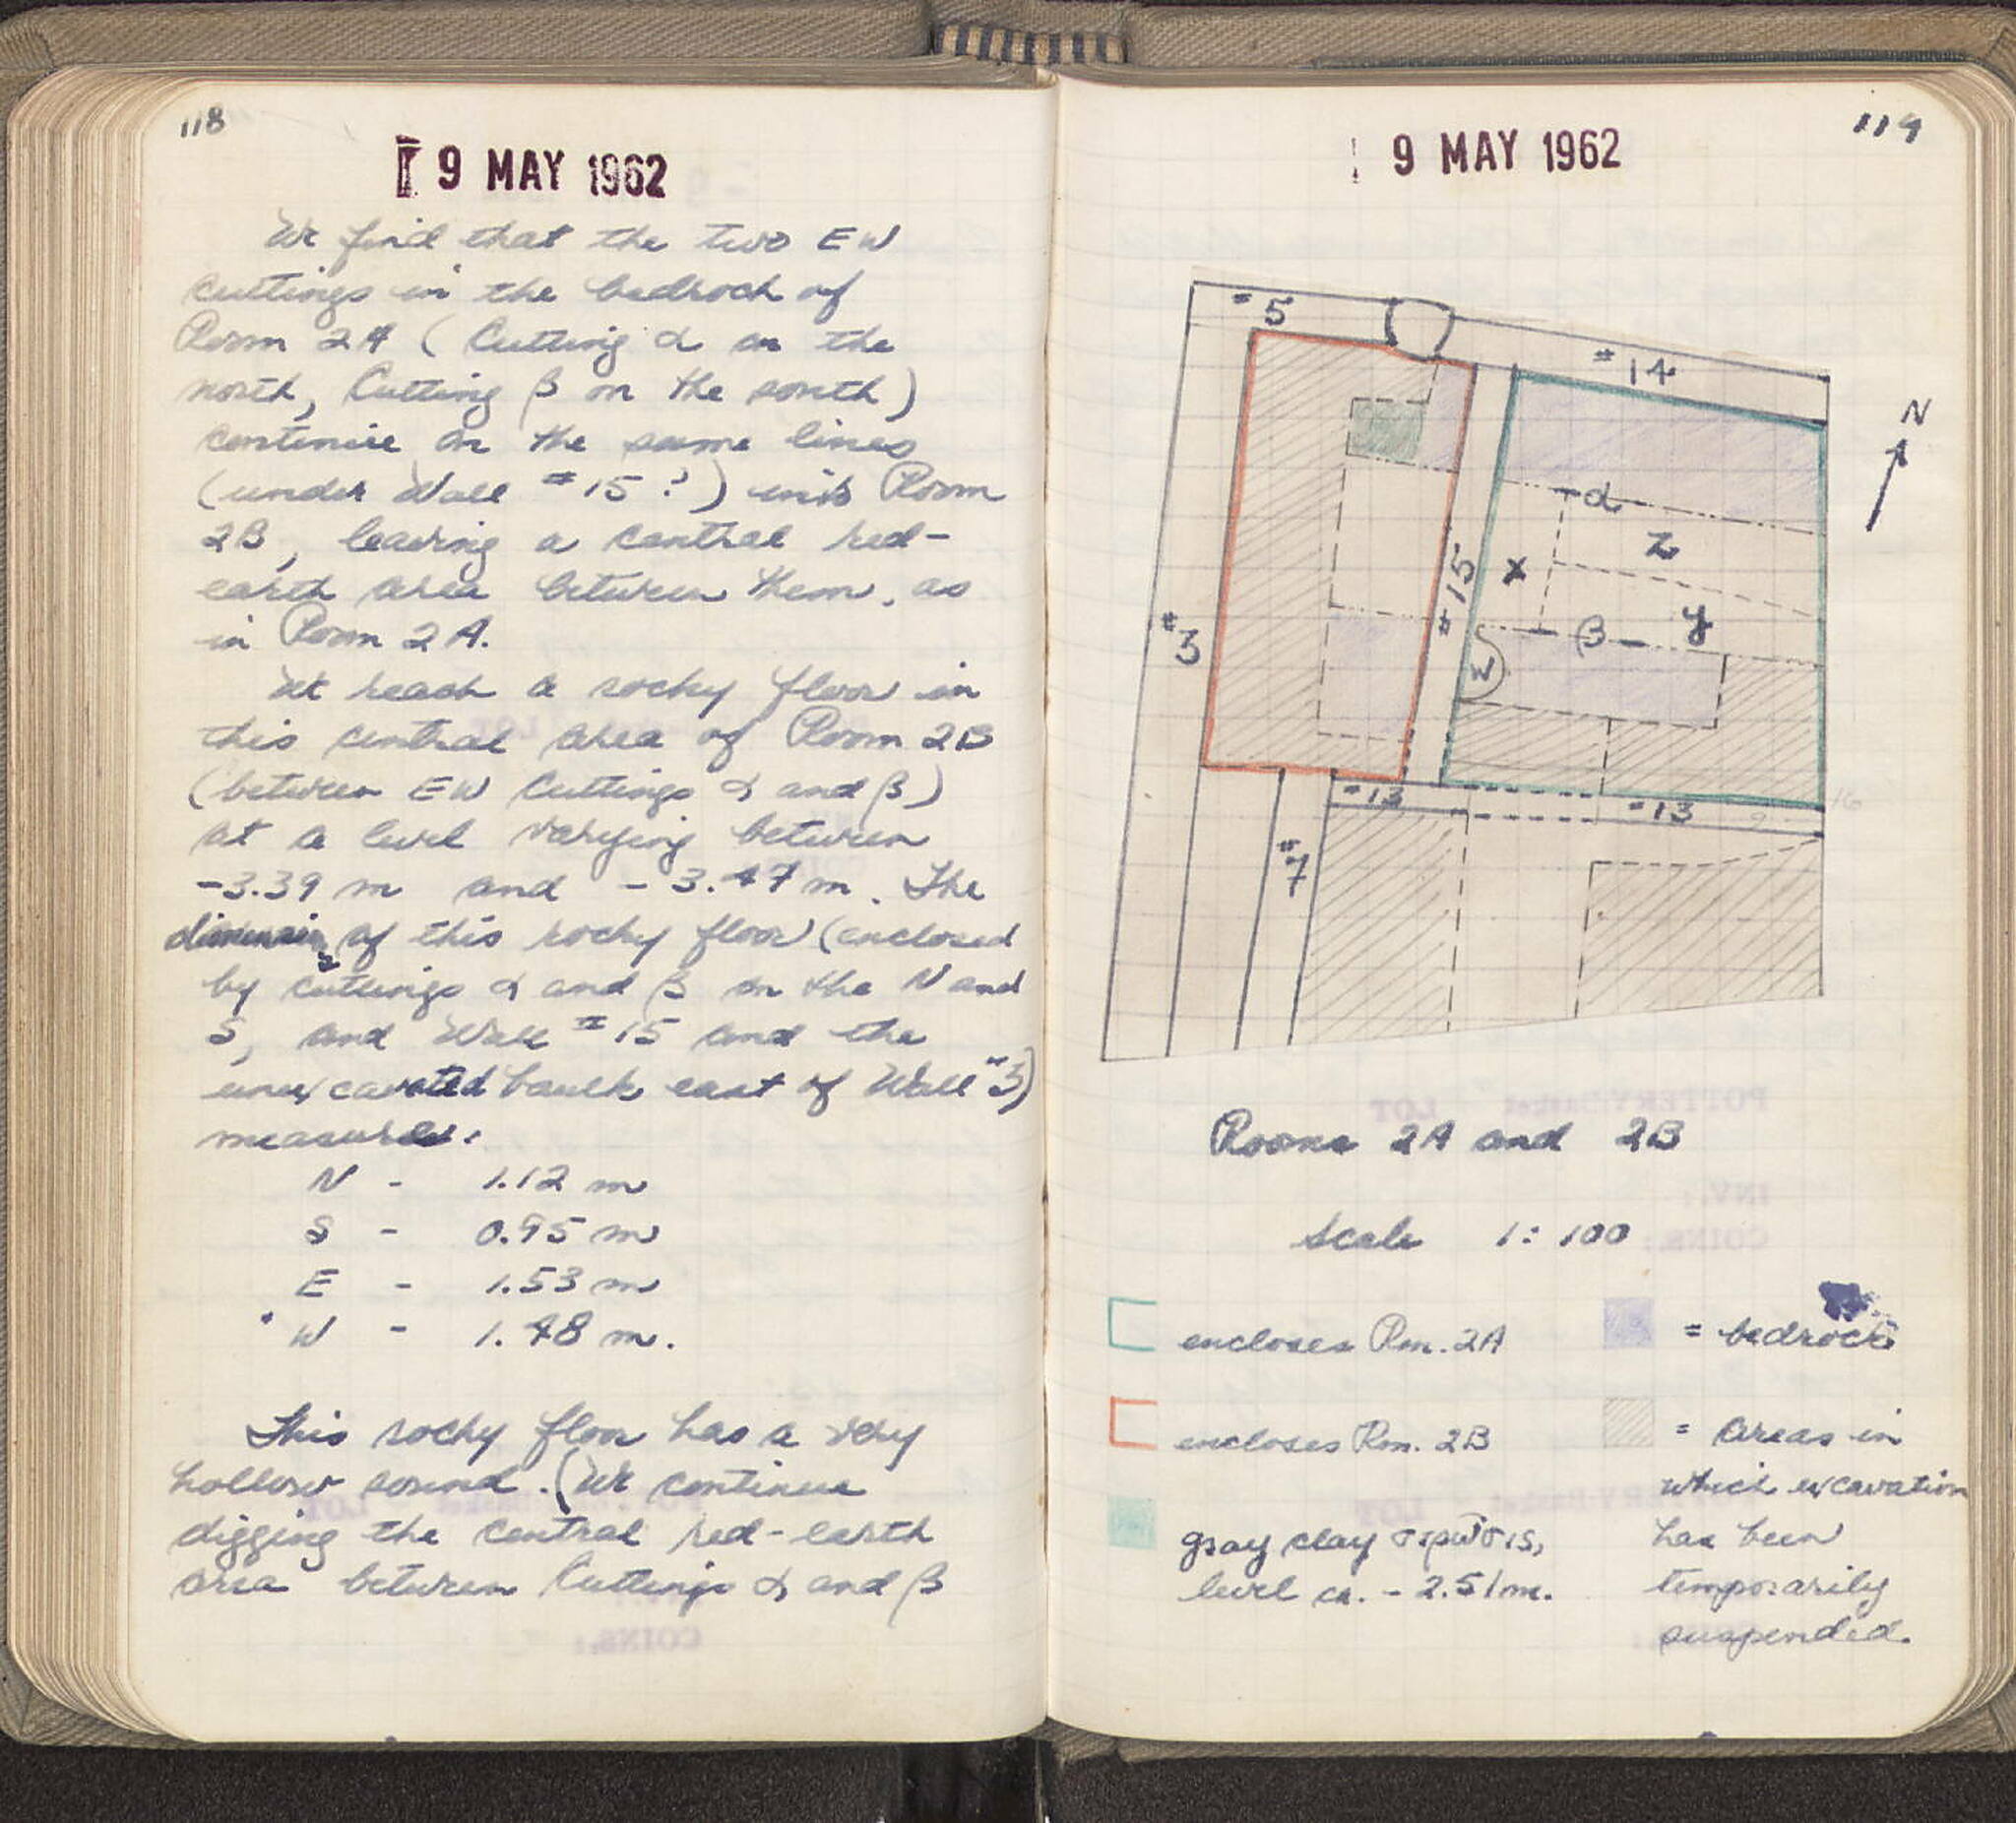 118
9 MAY 1962
We find that the two EW
cuttings in the bedrock of
Room 2A (Cutting α on the
north, Cutting β on the south)
continue on the same lines
(under Wall #15?) into Room
2B, leaving a central red-
earth area between them, as
in Room 2A.
We reach a rocky floor in
this central area of Room 2B
(between EW Cuttings α and β)
at a level varying between
-3.39 m and -3.47 m. The
dimensions of this rocky floor (enclosed
by cuttings α and β on the N and
S, and Wall #15 and the
unexcavated baulk east of Wall #3)
measure:
N - 1.12 m
S - 0.95 m
E - 1.53 m
W - 1.48 m.
This rocky floor has a very
hollow sound. (We continue
digging the central red-earth
area between Cuttings α and β
119
9 MAY 1962
#5
#14
N
α
Z
X
#15
β
y
#3
W
#13
#13
16
#7
Rooms 2A and 2B
Scale 1:100
encloses Rm. 2A
= bedrock
encloses Rm. 2B
= Areas in
which excavation
has been
temporarily
suspended.
gray clay στρῶσις,
level ca. - 2.51m.
POTTERY: Basket LOT
INV.:
COINS: